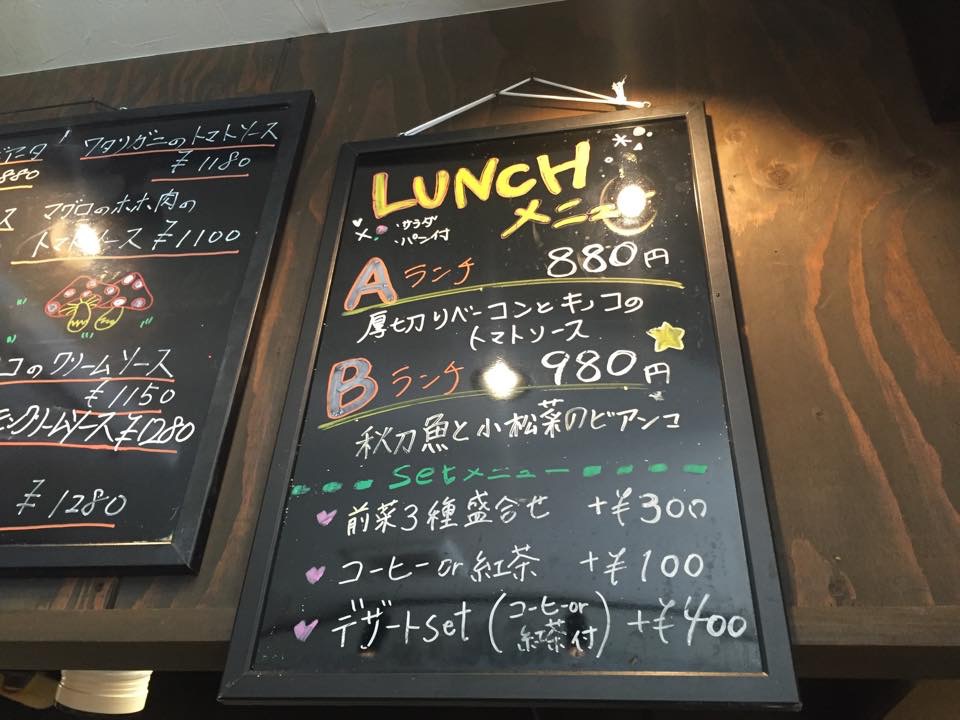 880
ワタリガニのトマトソース
¥1180
マグロのホホ肉の
トマトソース ¥1100
コのクリームソース
¥1150
クリームソース ¥1280
¥1280
LUNCH
メニュー
・サラダ
・パン付
A ランチ 880円
厚切りベーコンとキノコの
トマトソース
B ランチ 980円
秋刀魚と小松菜のビアンコ
Setメニュー
前菜3種盛合せ +¥300
コーヒーor紅茶 +¥100
デザートset (コーヒーor
紅茶付) +¥400